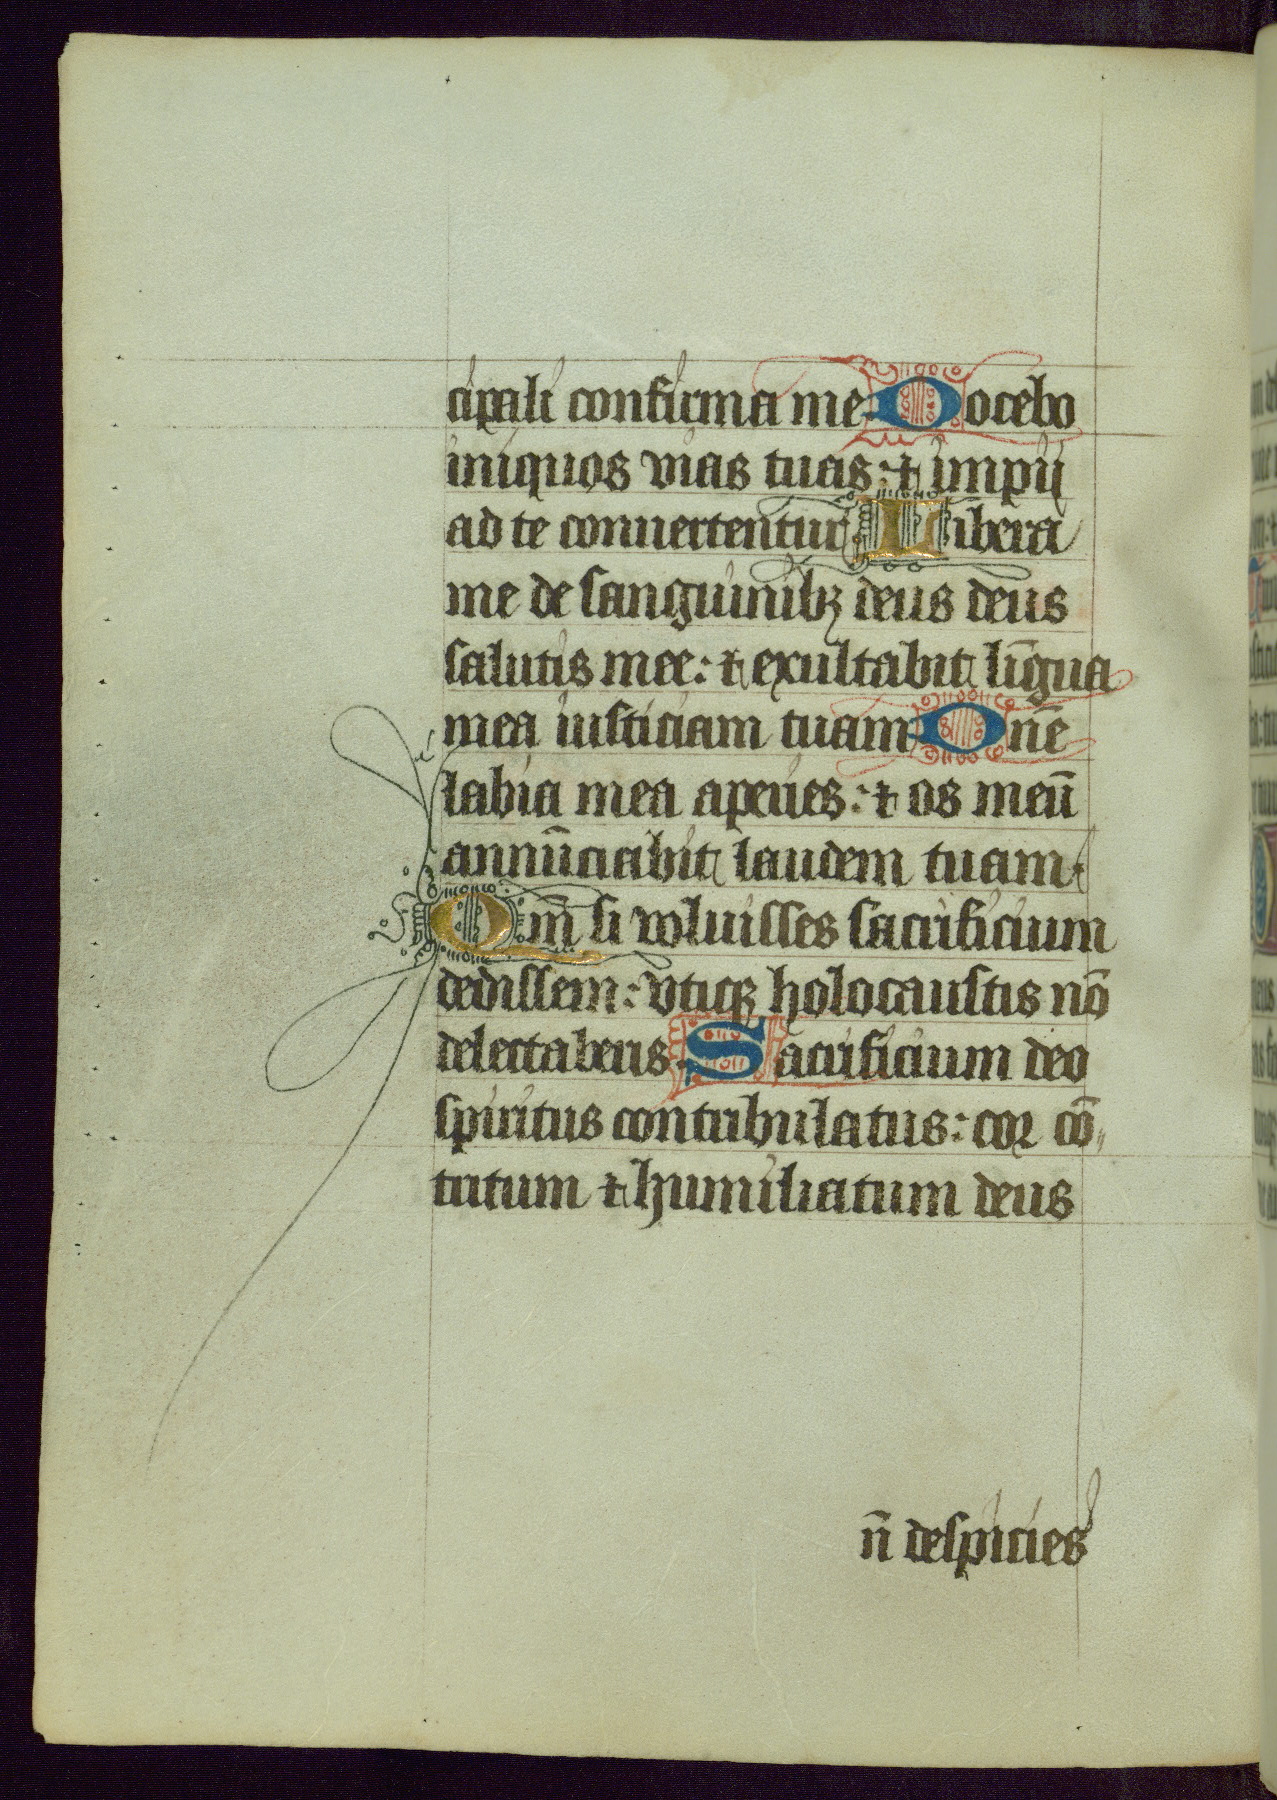 cipali confirma me Docebo
iniquos vias tuas: ⁊ impij
ad te conuertentur Libera
me de sanguinibꝫ deus deus
salutis mee: ⁊ exultabit līgua
mea iusticiam tuam Dn̄e
labia mea aperies: ⁊ os meū
annūciabit laudem tuam.
Qm̄ si voluisses sacrificium
dedissem: vtiqꝫ holocaustis nō
delectaberis Sacrificium deo
spiritus contribulatus: cor cō„
tritum ⁊ humiliatum deus
n̄ despicies